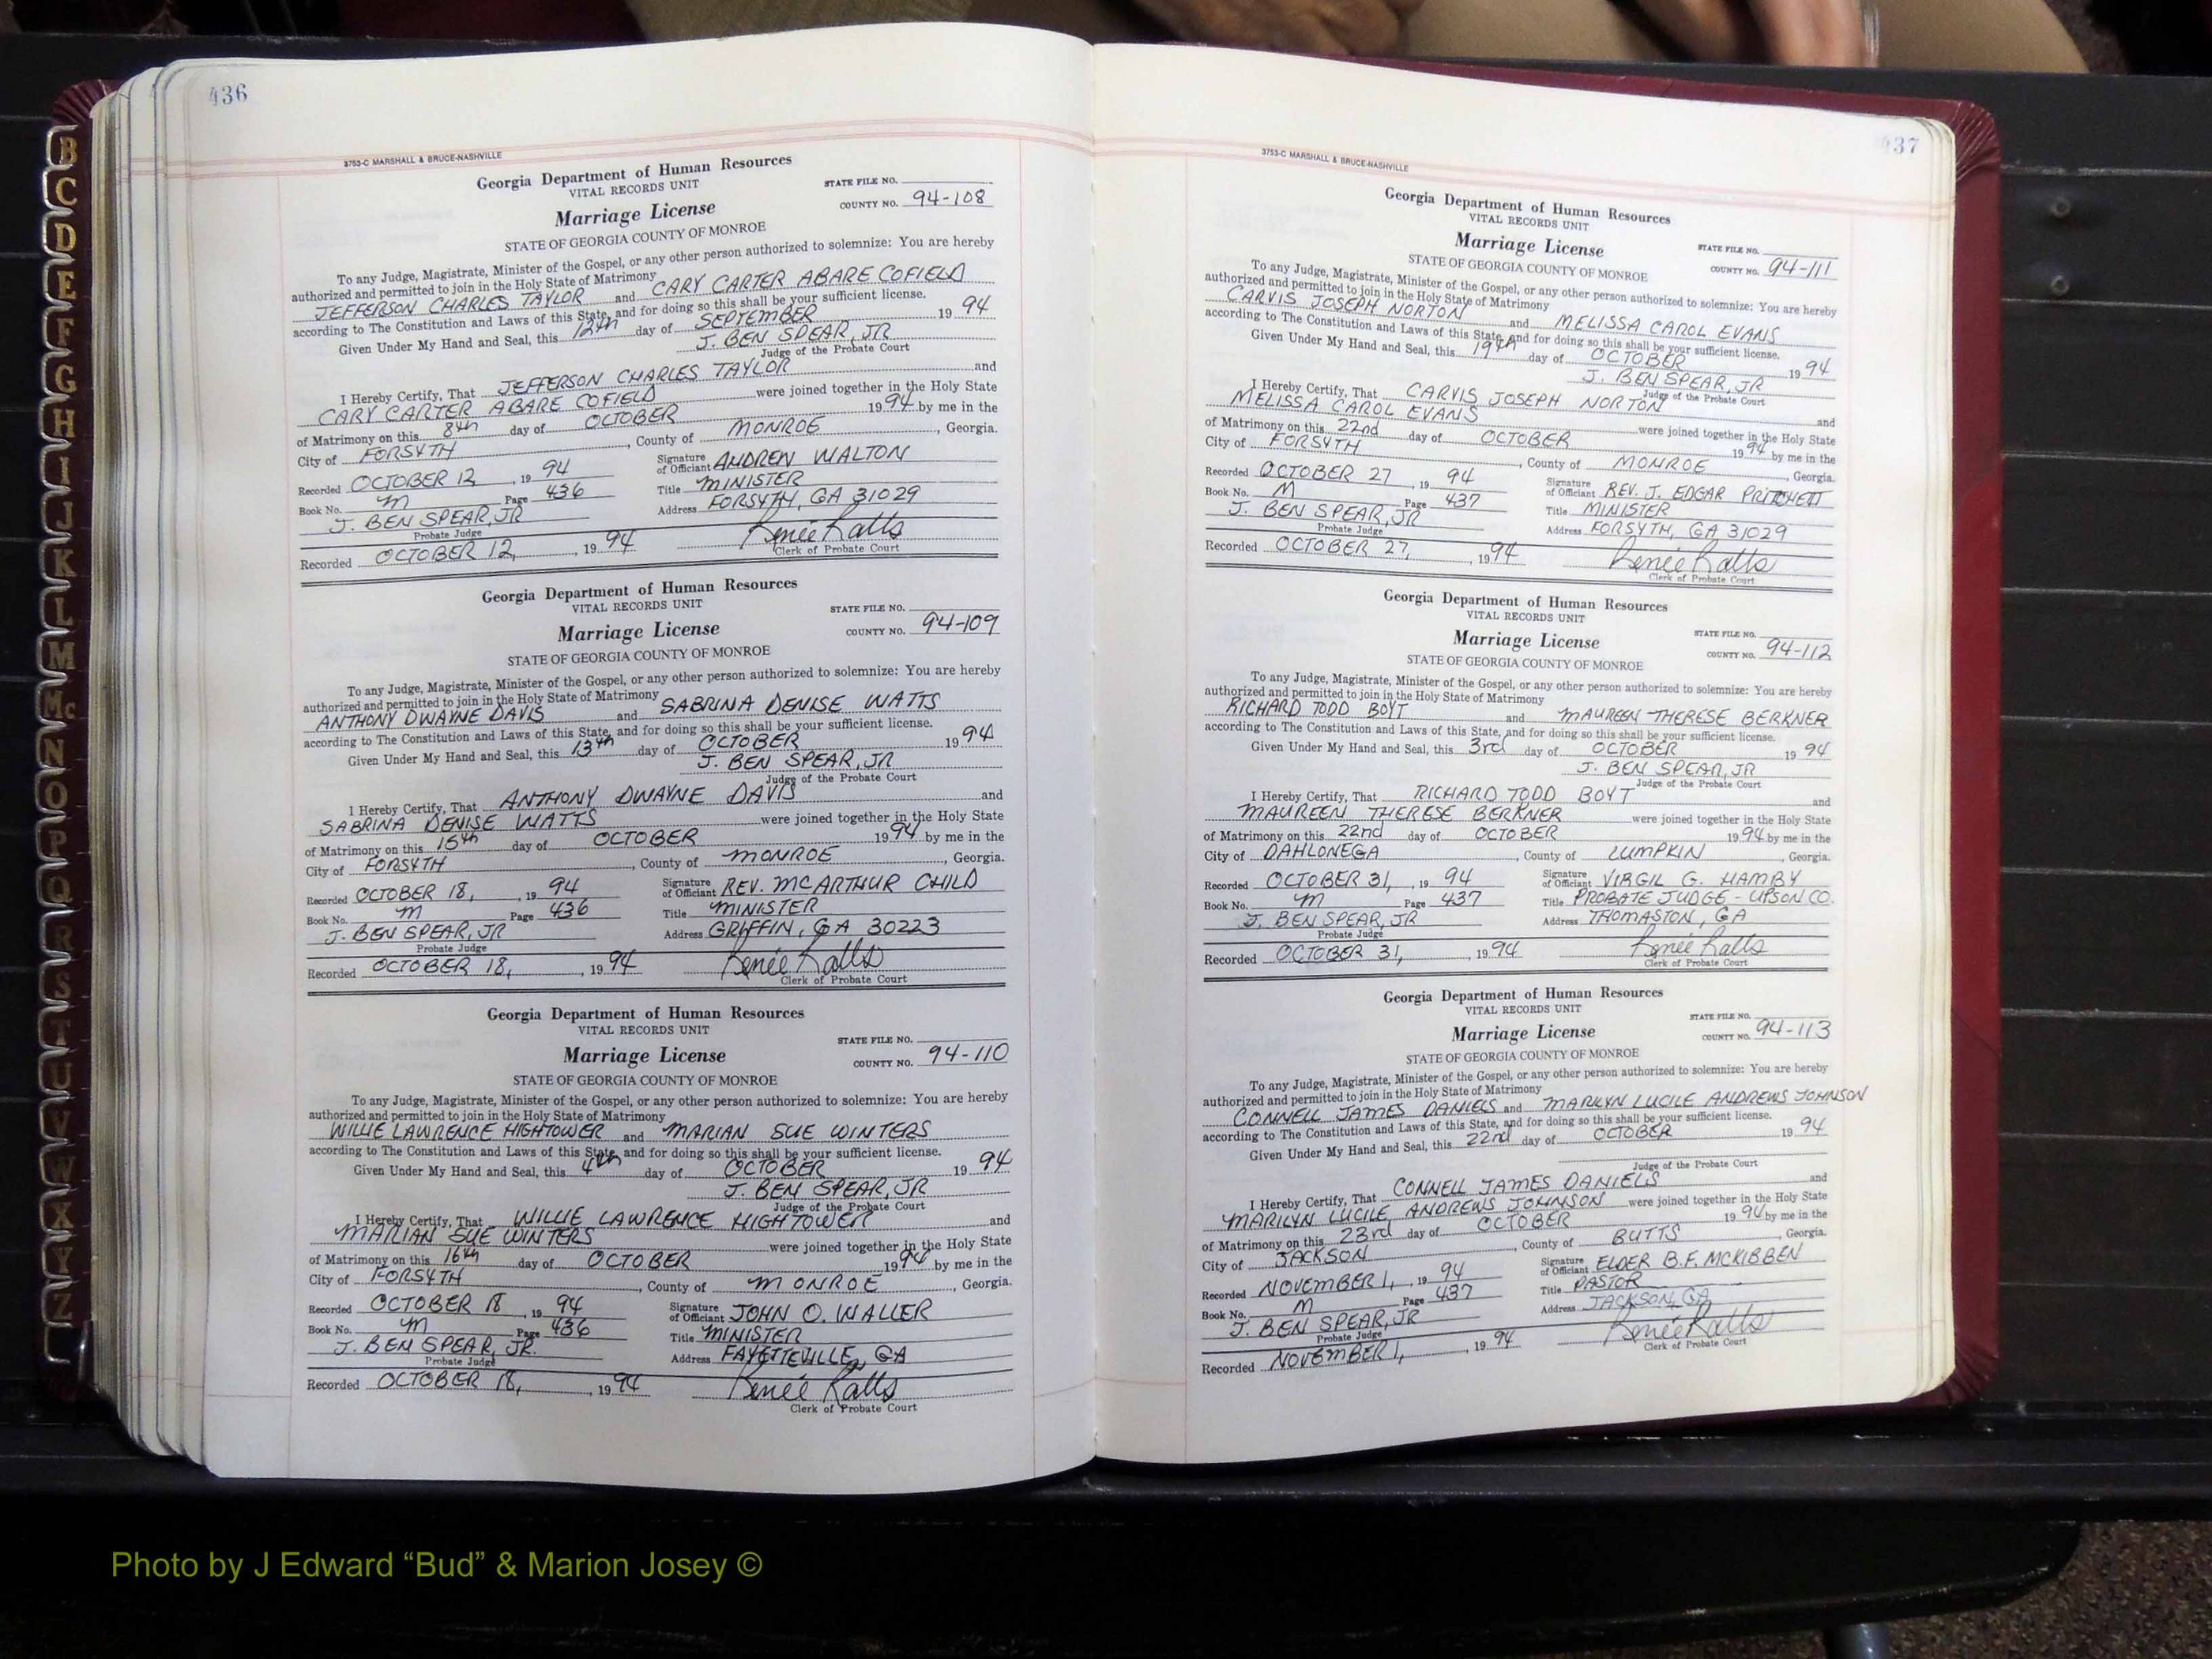 436
3753-C MARSHALL & BRUCE-NASHVILLE
Georgia Department of Human Resources
VITAL RECORDS UNIT
STATE FILE NO.
Marriage License
COUNTY NO. 94-108
STATE OF GEORGIA COUNTY OF MONROE
To any Judge, Magistrate, Minister of the Gospel, or any other person authorized to solemnize: You are hereby
authorized and permitted to join in the Holy State of Matrimony
JEFFERSON CHARLES TAYLOR and CARY CARTER ABARE COFIELD
according to The Constitution and Laws of this State, and for doing so this shall be your sufficient license.
Given Under My Hand and Seal, this 12th day of SEPTEMBER 19 94
J. BEN SPEAR, JR
Judge of the Probate Court
I Hereby Certify, That JEFFERSON CHARLES TAYLOR and
CARY CARTER ABARE COFIELD were joined together in the Holy State
of Matrimony on this 8th day of OCTOBER 19 94 by me in the
City of FORSYTH, County of MONROE, Georgia.
Recorded OCTOBER 12, 19 94
Signature of Officiant ANDREW WALTON
Book No. M Page 436
Title MINISTER
J. BEN SPEAR, JR
Address FORSYTH, GA 31029
Probate Judge
Renée Ralls
Recorded OCTOBER 12, 19 94
Clerk of Probate Court
Georgia Department of Human Resources
VITAL RECORDS UNIT
STATE FILE NO.
Marriage License
COUNTY NO. 94-109
STATE OF GEORGIA COUNTY OF MONROE
To any Judge, Magistrate, Minister of the Gospel, or any other person authorized to solemnize: You are hereby
authorized and permitted to join in the Holy State of Matrimony
ANTHONY DWAYNE DAVIS and SABRINA DENISE WATTS
according to The Constitution and Laws of this State, and for doing so this shall be your sufficient license.
Given Under My Hand and Seal, this 13th day of OCTOBER 19 94
J. BEN SPEAR, JR
Judge of the Probate Court
I Hereby Certify, That ANTHONY DWAYNE DAVIS and
SABRINA DENISE WATTS were joined together in the Holy State
of Matrimony on this 15th day of OCTOBER 19 94 by me in the
City of FORSYTH, County of MONROE, Georgia.
Recorded OCTOBER 18, 19 94
Signature of Officiant REV. MCARTHUR CHILD
Book No. M Page 436
Title MINISTER
J. BEN SPEAR, JR
Address GRIFFIN, GA 30223
Probate Judge
Renée Ralls
Recorded OCTOBER 18, 19 94
Clerk of Probate Court
Georgia Department of Human Resources
VITAL RECORDS UNIT
STATE FILE NO.
Marriage License
COUNTY NO. 94-110
STATE OF GEORGIA COUNTY OF MONROE
To any Judge, Magistrate, Minister of the Gospel, or any other person authorized to solemnize: You are hereby
authorized and permitted to join in the Holy State of Matrimony
WILLIE LAWRENCE HIGHTOWER and MARIAN SUE WINTERS
according to The Constitution and Laws of this State, and for doing so this shall be your sufficient license.
Given Under My Hand and Seal, this 4th day of OCTOBER 19 94
J. BEN SPEAR, JR
Judge of the Probate Court
I Hereby Certify, That WILLIE LAWRENCE HIGHTOWER and
MARIAN SUE WINTERS were joined together in the Holy State
of Matrimony on this 16th day of OCTOBER 19 94 by me in the
City of FORSYTH, County of MONROE, Georgia.
Recorded OCTOBER 18, 19 94
Signature of Officiant JOHN O. WALLER
Book No. M Page 436
Title MINISTER
J. BEN SPEAR, JR.
Address FAYETTEVILLE, GA
Probate Judge
Renée Ralls
Recorded OCTOBER 18, 19 94
Clerk of Probate Court
437
3753-C MARSHALL & BRUCE-NASHVILLE
Georgia Department of Human Resources
VITAL RECORDS UNIT
Marriage License
STATE FILE NO.
STATE OF GEORGIA COUNTY OF MONROE
COUNTY NO. 94-111
To any Judge, Magistrate, Minister of the Gospel, or any other person authorized to solemnize: You are hereby
authorized and permitted to join in the Holy State of Matrimony
CARVIS JOSEPH NORTON and MELISSA CAROL EVANS
according to The Constitution and Laws of this State, and for doing so this shall be your sufficient license.
Given Under My Hand and Seal, this 19th day of OCTOBER 19 94
J. BEN SPEAR, JR
Judge of the Probate Court
I Hereby Certify, That CARVIS JOSEPH NORTON and
MELISSA CAROL EVANS were joined together in the Holy State
of Matrimony on this 22nd day of OCTOBER 19 94 by me in the
City of FORSYTH, County of MONROE, Georgia.
Recorded OCTOBER 27, 19 94
Signature of Officiant REV. J. EDGAR PRITCHETT
Book No. M Page 437
Title MINISTER
J. BEN SPEAR, JR
Address FORSYTH, GA 31029
Probate Judge
Renée Ralls
Recorded OCTOBER 27, 19 94
Clerk of Probate Court
Georgia Department of Human Resources
VITAL RECORDS UNIT
STATE FILE NO.
Marriage License
COUNTY NO. 94-112
STATE OF GEORGIA COUNTY OF MONROE
To any Judge, Magistrate, Minister of the Gospel, or any other person authorized to solemnize: You are hereby
authorized and permitted to join in the Holy State of Matrimony
RICHARD TODD BOYT and MAUREEN THERESE BERKNER
according to The Constitution and Laws of this State, and for doing so this shall be your sufficient license.
Given Under My Hand and Seal, this 3rd day of OCTOBER 19 94
J. BEN SPEAR, JR
Judge of the Probate Court
I Hereby Certify, That RICHARD TODD BOYT and
MAUREEN THERESE BERKNER were joined together in the Holy State
of Matrimony on this 22nd day of OCTOBER 19 94 by me in the
City of DAHLONEGA, County of LUMPKIN, Georgia.
Recorded OCTOBER 31, 19 94
Signature of Officiant VIRGIL G. HAMBY
Book No. M Page 437
Title PROBATE JUDGE - UPSON CO.
J. BEN SPEAR, JR
Address THOMASTON, GA
Probate Judge
Renée Ralls
Recorded OCTOBER 31, 19 94
Clerk of Probate Court
Georgia Department of Human Resources
VITAL RECORDS UNIT
STATE FILE NO.
Marriage License
COUNTY NO. 94-113
STATE OF GEORGIA COUNTY OF MONROE
To any Judge, Magistrate, Minister of the Gospel, or any other person authorized to solemnize: You are hereby
authorized and permitted to join in the Holy State of Matrimony
CONNELL JAMES DANIELS and MARILYN LUCILE ANDREWS JOHNSON
according to The Constitution and Laws of this State, and for doing so this shall be your sufficient license.
Given Under My Hand and Seal, this 22nd day of OCTOBER 19 94
Judge of the Probate Court
I Hereby Certify, That CONNELL JAMES DANIELS and
MARILYN LUCILE ANDREWS JOHNSON were joined together in the Holy State
of Matrimony on this 23rd day of OCTOBER 19 94 by me in the
City of JACKSON, County of BUTTS, Georgia.
Recorded NOVEMBER 1, 19 94
Signature of Officiant ELDER B.F. MCKIBBEN
Book No. M Page 437
Title PASTOR
J. BEN SPEAR, JR
Address JACKSON, GA
Probate Judge
Renée Ralls
Recorded NOVEMBER 1, 19 94
Clerk of Probate Court
B
C
D
E
F
G
H
I
J
K
L
M
Mc
N
O
P
Q
R
S
T
U
V
W
X
Y
Z
Photo by J Edward “Bud” & Marion Josey ©